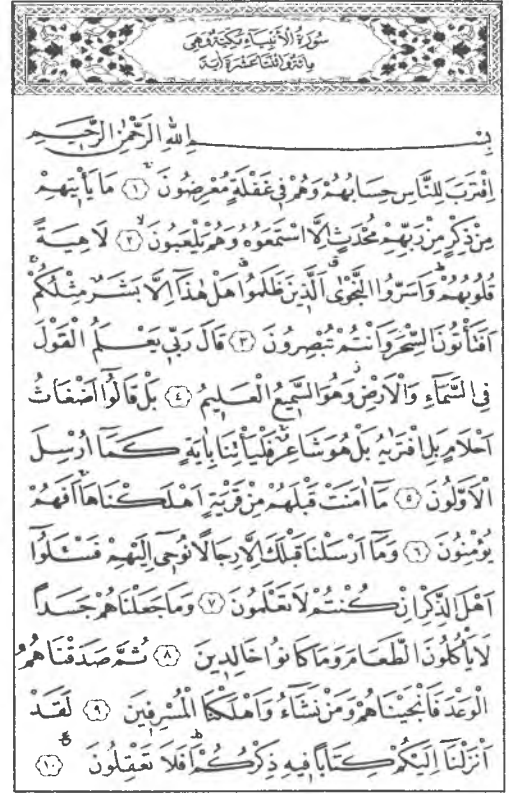 سُورَةُ الْاَنْبِيَاءِ مَكِّيَّةٌ وَهِيَ
مِائَةٌ وَاثْنَتَا عَشْرَةَ اٰيَةً
بِسْمِ اللّٰهِ الرَّحْمٰنِ الرَّحٖيمِ
اِقْتَرَبَ لِلنَّاسِ حِسَابُهُمْ وَهُمْ فٖي غَفْلَةٍ مُعْرِضُونَۚ ﴿١﴾ مَا يَأْتٖيهِمْ
مِنْ ذِكْرٍ مِنْ رَبِّهِمْ مُحْدَثٍ اِلَّا اسْتَمَعُوهُ وَهُمْ يَلْعَبُونَۙ ﴿٢﴾ لَاهِيَةً
قُلُوبُهُمْۜ وَاَسَرُّوا النَّجْوٰىۗ اَلَّذٖينَ ظَلَمُواۗ هَلْ هٰذَٓا اِلَّا بَشَرٌ مِثْلُكُمْۚ
اَفَتَأْتُونَ السِّحْرَ وَاَنْتُمْ تُبْصِرُونَ ﴿٣﴾ قَالَ رَبّٖي يَعْلَمُ الْقَوْلَ
فِي السَّمَٓاءِ وَالْاَرْضِۘ وَهُوَ السَّمٖيعُ الْعَلٖيمُ ﴿٤﴾ بَلْ قَالُٓوا اَضْغَاثُ
اَحْلَامٍ بَلِ افْتَرٰيهُ بَلْ هُوَ شَاعِرٌۚ فَلْيَأْتِنَا بِاٰيَةٍ كَمَٓا اُرْسِلَ
الْاَوَّلُونَ ﴿٥﴾ مَٓا اٰمَنَتْ قَبْلَهُمْ مِنْ قَرْيَةٍ اَهْلَكْنَاهَاۚ اَفَهُمْ
يُؤْمِنُونَ ﴿٦﴾ وَمَٓا اَرْسَلْنَا قَبْلَكَ اِلَّا رِجَالًا نُوحٖٓي اِلَيْهِمْ فَسْـَٔلُٓوا
اَهْلَ الذِّكْرِ اِنْ كُنْتُمْ لَا تَعْلَمُونَ ﴿٧﴾ وَمَا جَعَلْنَاهُمْ جَسَدًا
لَا يَأْكُلُونَ الطَّعَامَ وَمَا كَانُوا خَالِدٖينَ ﴿٨﴾ ثُمَّ صَدَقْنَاهُمُ
الْوَعْدَ فَاَنْجَيْنَاهُمْ وَمَنْ نَشَٓاءُ وَاَهْلَكْنَا الْمُسْرِفٖينَ ﴿٩﴾ لَقَدْ
اَنْزَلْنَٓا اِلَيْكُمْ كِتَابًا فٖيهِ ذِكْرُكُمْۜ اَفَلَا تَعْقِلُونَࣖ ﴿١٠﴾